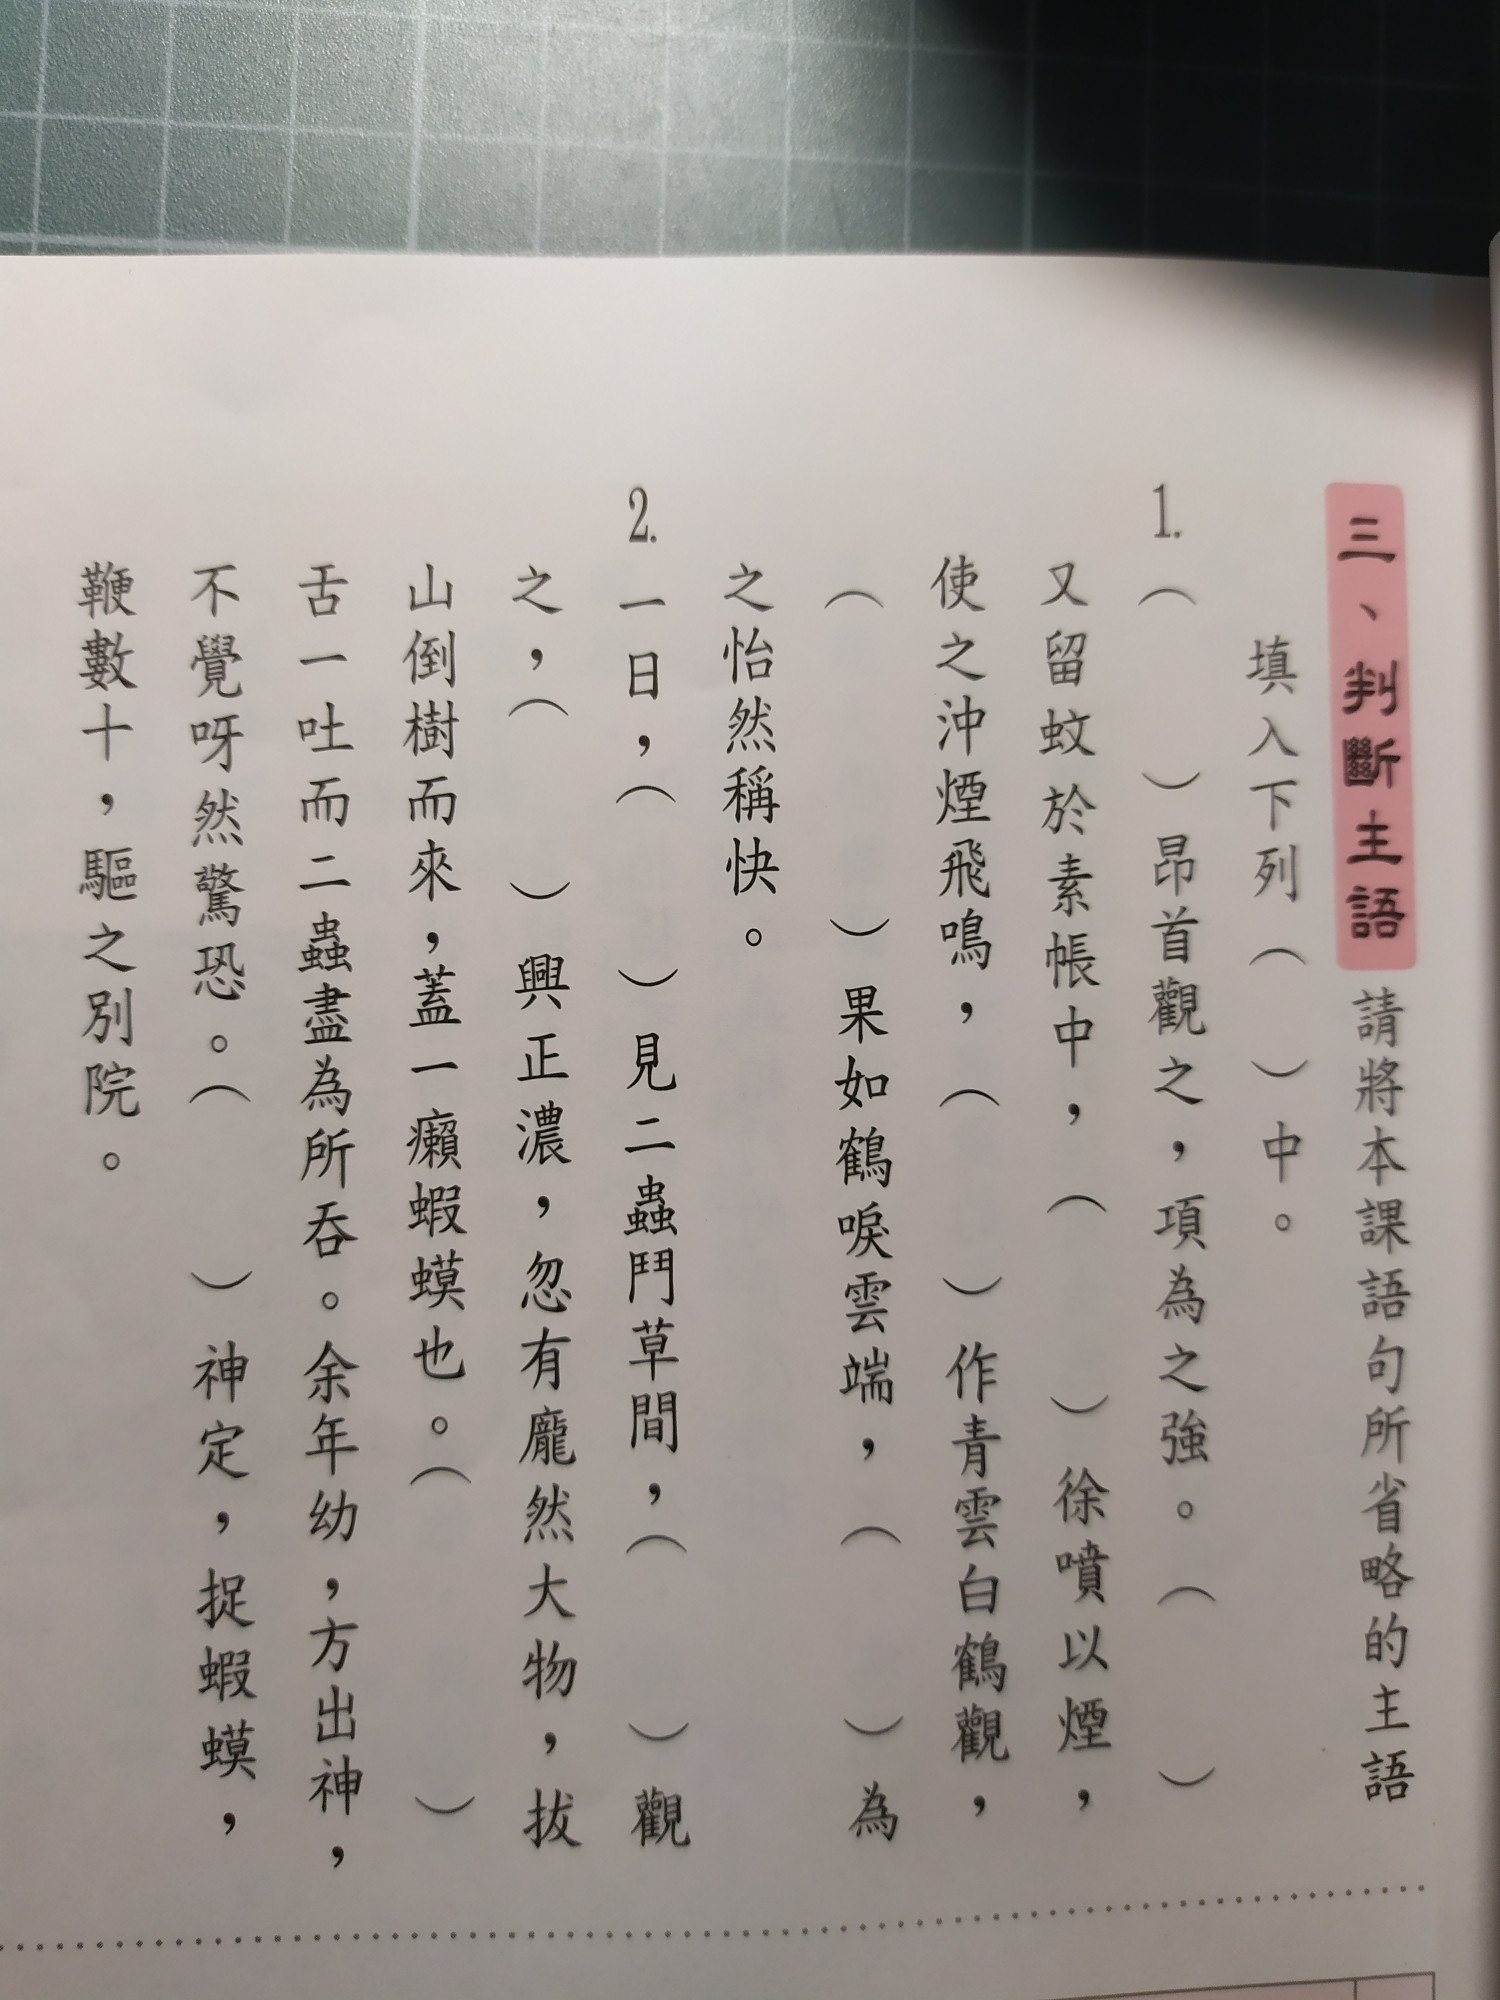 三、判斷主語 請將本課語句所省略的主語
填入下列（　）中。
1.（　　）昂首觀之，項為之強。（　　）
又留蚊於素帳中，（　　）徐噴以煙，
使之沖煙飛鳴，（　　）作青雲白鶴觀，
（　　）果如鶴唳雲端，（　　）為
之怡然稱快。
2.一日，（　　）見二蟲鬥草間，（　　）觀
之，（　　）興正濃，忽有龐然大物，拔
山倒樹而來，蓋一癩蝦蟆也。（　　）
舌一吐而二蟲盡為所吞。余年幼，方出神，
不覺呀然驚恐。（　　）神定，捉蝦蟆，
鞭數十，驅之別院。